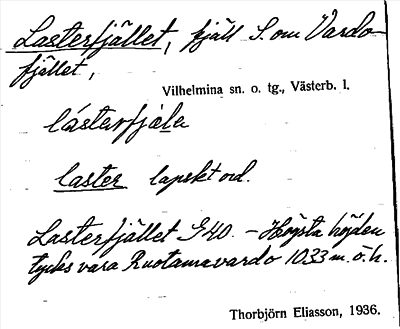 Lasterfjället, fjäll S. om Vardo-
fjället,
Vilhelmina sn. o. tg., Västerb. l.
lásterfjäla
laster lapskt ord.
Lasterfjället G 40. - Högsta höjden
tycks vara Ruotamavardo 1033 m. ö. h.
Thorbjörn Eliasson, 1936.